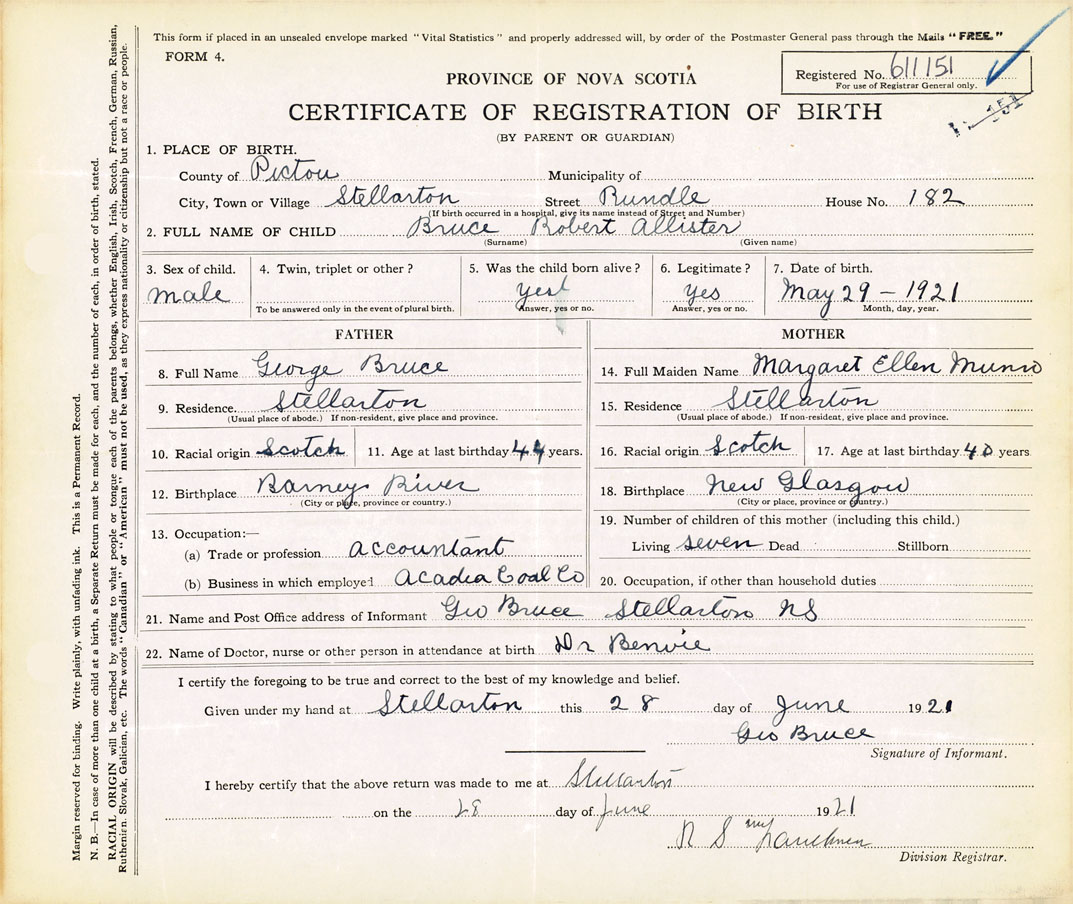 This form if placed in an unsealed envelope marked "Vital Statistics" and properly addressed will, by order of the Postmaster General pass through the Mails "FREE."
FORM 4.
Registered No. 611151
For use of Registrar General only.
PROVINCE OF NOVA SCOTIA
CERTIFICATE OF REGISTRATION OF BIRTH
(BY PARENT OR GUARDIAN)
1. PLACE OF BIRTH.
County of Pictou Municipality of
City, Town or Village Stellarton Street Rundle House No. 182
(If birth occurred in a hospital, give its name instead of Street and Number)
2. FULL NAME OF CHILD Bruce Robert Allister
(Surname) (Given name)
3. Sex of child. 4. Twin, triplet or other? 5. Was the child born alive? 6. Legitimate? 7. Date of birth.
male yes yes May 29 - 1921
To be answered only in the event of plural birth. Answer, yes or no. Answer, yes or no. Month, day, year.
FATHER
8. Full Name George Bruce
9. Residence. Stellarton
(Usual place of abode.) If non-resident, give place and province.
10. Racial origin Scotch 11. Age at last birthday 44 years.
12. Birthplace Barneys River
(City or place, province or country.)
13. Occupation:—
(a) Trade or profession accountant
(b) Business in which employed Acadia Coal Co
MOTHER
14. Full Maiden Name Margaret Ellen Munro
15. Residence Stellarton
(Usual place of abode.) If non-resident, give place and province.
16. Racial origin Scotch 17. Age at last birthday 40 years
18. Birthplace New Glasgow
(City or place, province or country.)
19. Number of children of this mother (including this child.)
Living seven Dead Stillborn
20. Occupation, if other than household duties
21. Name and Post Office address of Informant Geo Bruce Stellarton NS
22. Name of Doctor, nurse or other person in attendance at birth Dr Benvie
I certify the foregoing to be true and correct to the best of my knowledge and belief.
Given under my hand at Stellarton this 28 day of June 1921
Geo Bruce
Signature of Informant.
I hereby certify that the above return was made to me at Stellarton
on the 28 day of June 1921
R S
Division Registrar.
Margin reserved for binding. Write plainly, with unfading ink. This is a Permanent Record.
N. B.—In case of more than one child at a birth, a Separate Return must be made for each, and the number of each, in order of birth, stated.
RACIAL ORIGIN will be described by stating to what people or tongue each of the parents belongs, whether English, Irish, Scotch, French, German, Russian,
Ruthenian, Slovak, Galician, etc. The words "Canadian" or "American" must not be used, as they express nationality or citizenship but not a race or people.